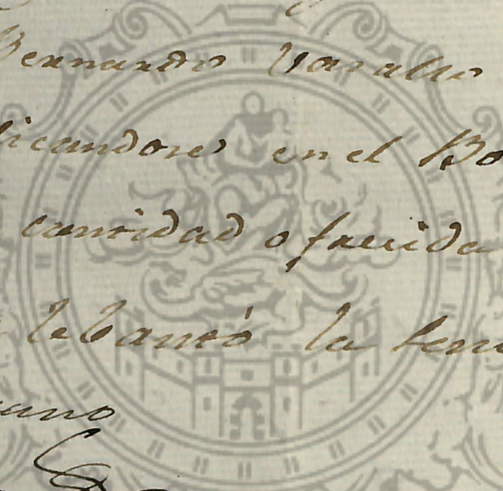 Bernardo Varallo
licandose en el Bo
cantidad ofrecida
lebantó la sen